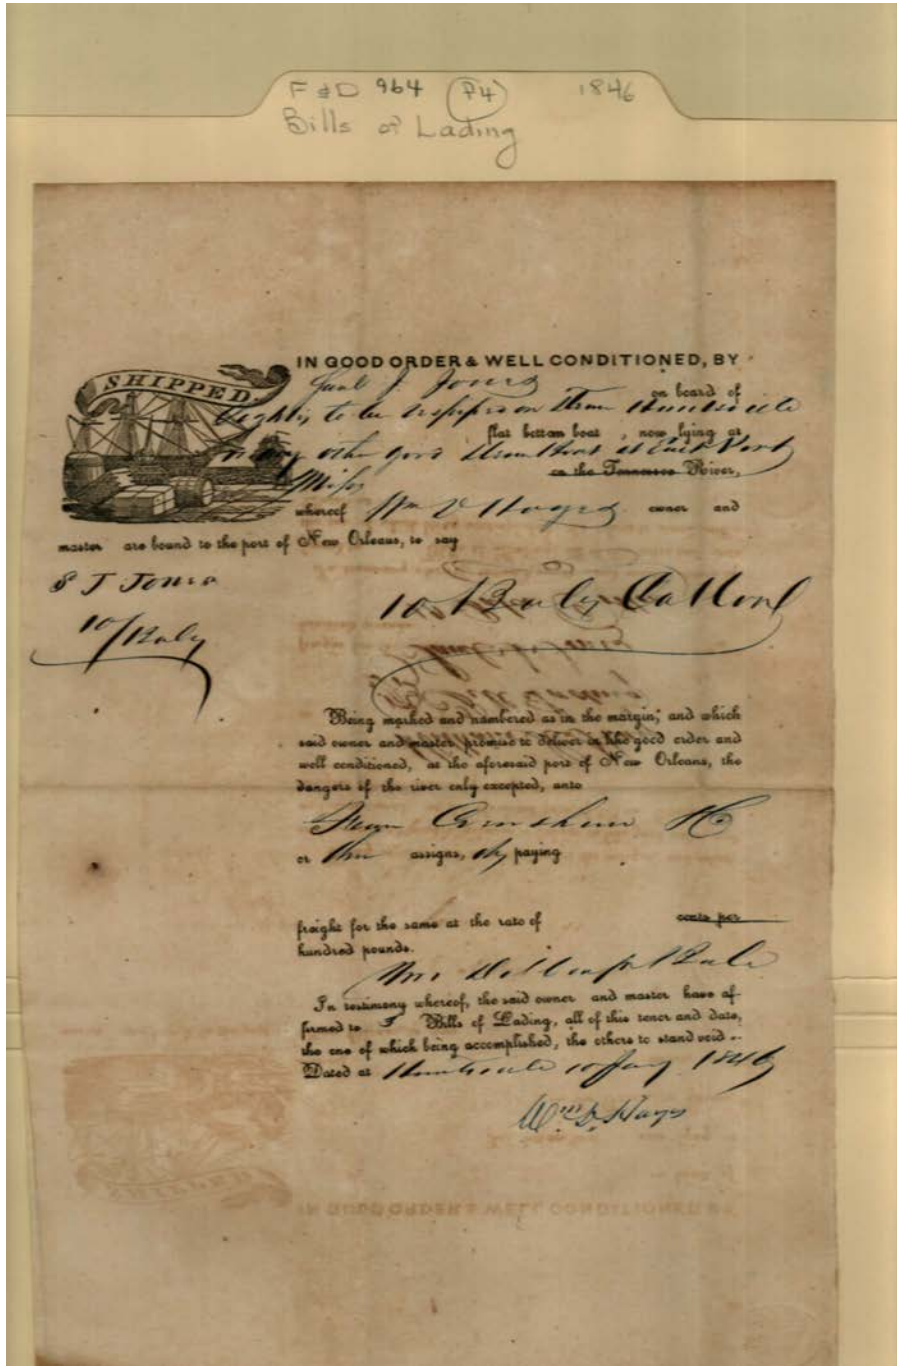 F & D 964 P4 1846
Bills of Lading
SHIPPED
IN GOOD ORDER & WELL CONDITIONED, BY
Saml J. Jones
on board of
to be on
flat bottom boat, now lying at
other good Steam Boat at East Port
on the Tennessee River,
Miss
whereof Wm D Hayes owner and
master are bound to the port of New Orleans, to say
S J Jones
10 Bales Cotton
10/Bales
Being marked and numbered as in the margin; and which
said owner and master promise to deliver in like good order and
well conditioned, at the aforesaid port of New Orleans, the
dangers of the river only excepted, unto
or assigns, they paying
freight for the same at the rate of cents per
hundred pounds.
In testimony whereof, the said owner and master have af
firmed to 3 Bills of Lading, all of this tenor and date,
the one of which being accomplished, the others to stand void.
Dated at Huntsville 10 Jany 1846
Wm D. Hayes
SHIPPED
IN GOOD ORDER & WELL CONDITIONED, BY